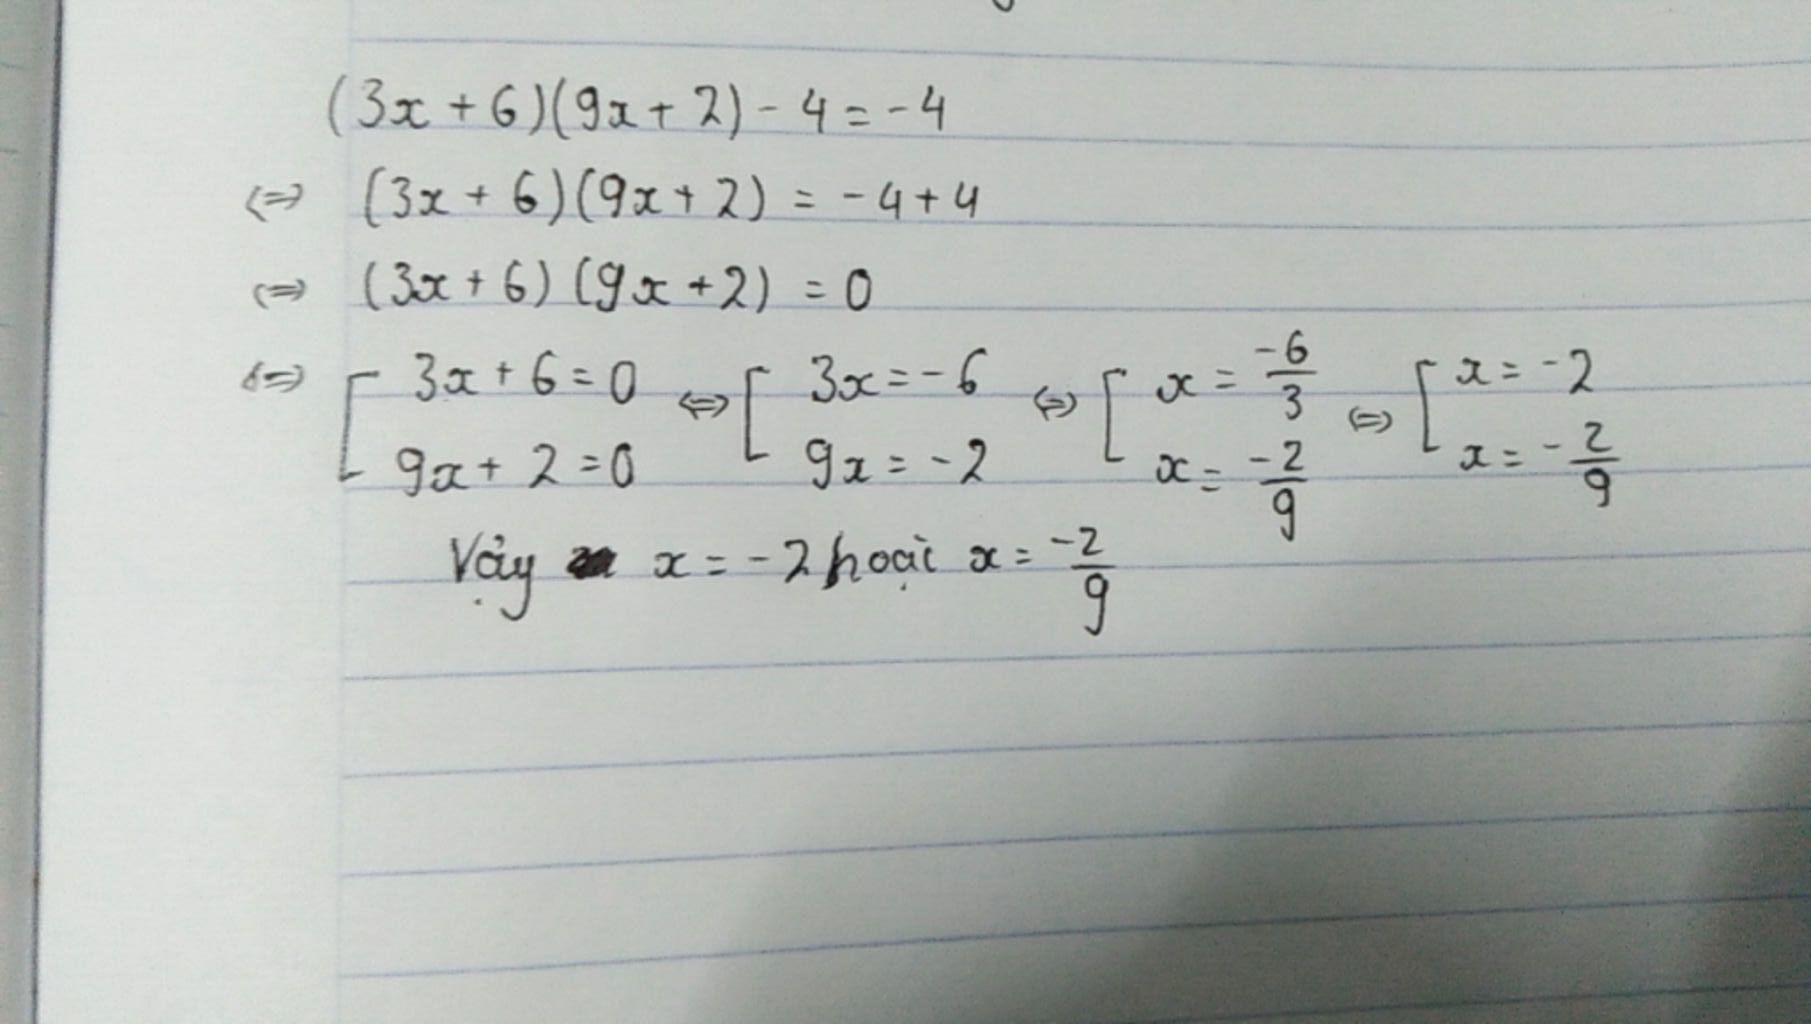 (3x + 6)(9x + 2) - 4 = -4
⇔ (3x + 6)(9x + 2) = -4 + 4
⇔ (3x + 6)(9x + 2) = 0
⇔ [ 3x + 6 = 0 ⇔ [ 3x = -6 ⇔ [ x = -6/3 ⇔ [ x = -2
9x + 2 = 0 9x = -2 x = -2/9 x = -2/9
Vậy x = -2 hoặc x = -2/9